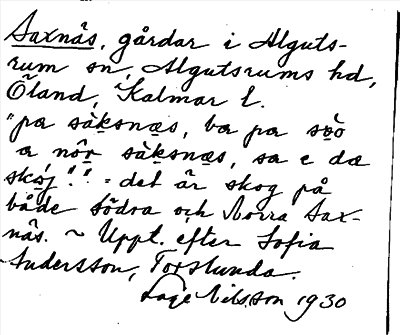 Saxnäs, gårdar i Alguts-
rum sn, Algutsrums hd,
Öland, Kalmar l.
"pa sàksnæs, ba pa söò
a nôr sàksnæs, sa e dæ
skój"." = det är skog på
både södra och Norra Sax-
näs. ~ Uppt. efter Sofia
Andersson, Torslunda.
Lage Nilsson 1930